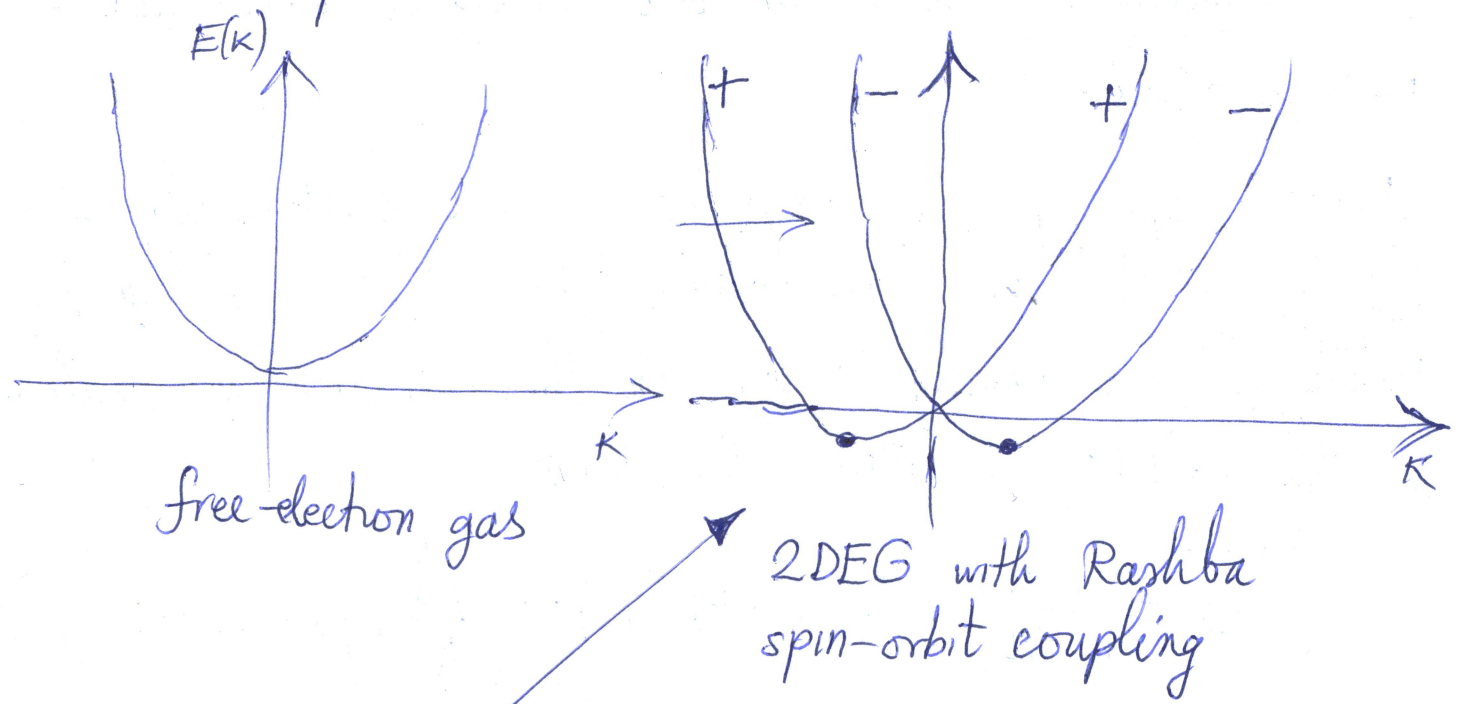 E(K)
+ - + -
K
K
free-electron gas
2DEG with Rashba
spin-orbit coupling